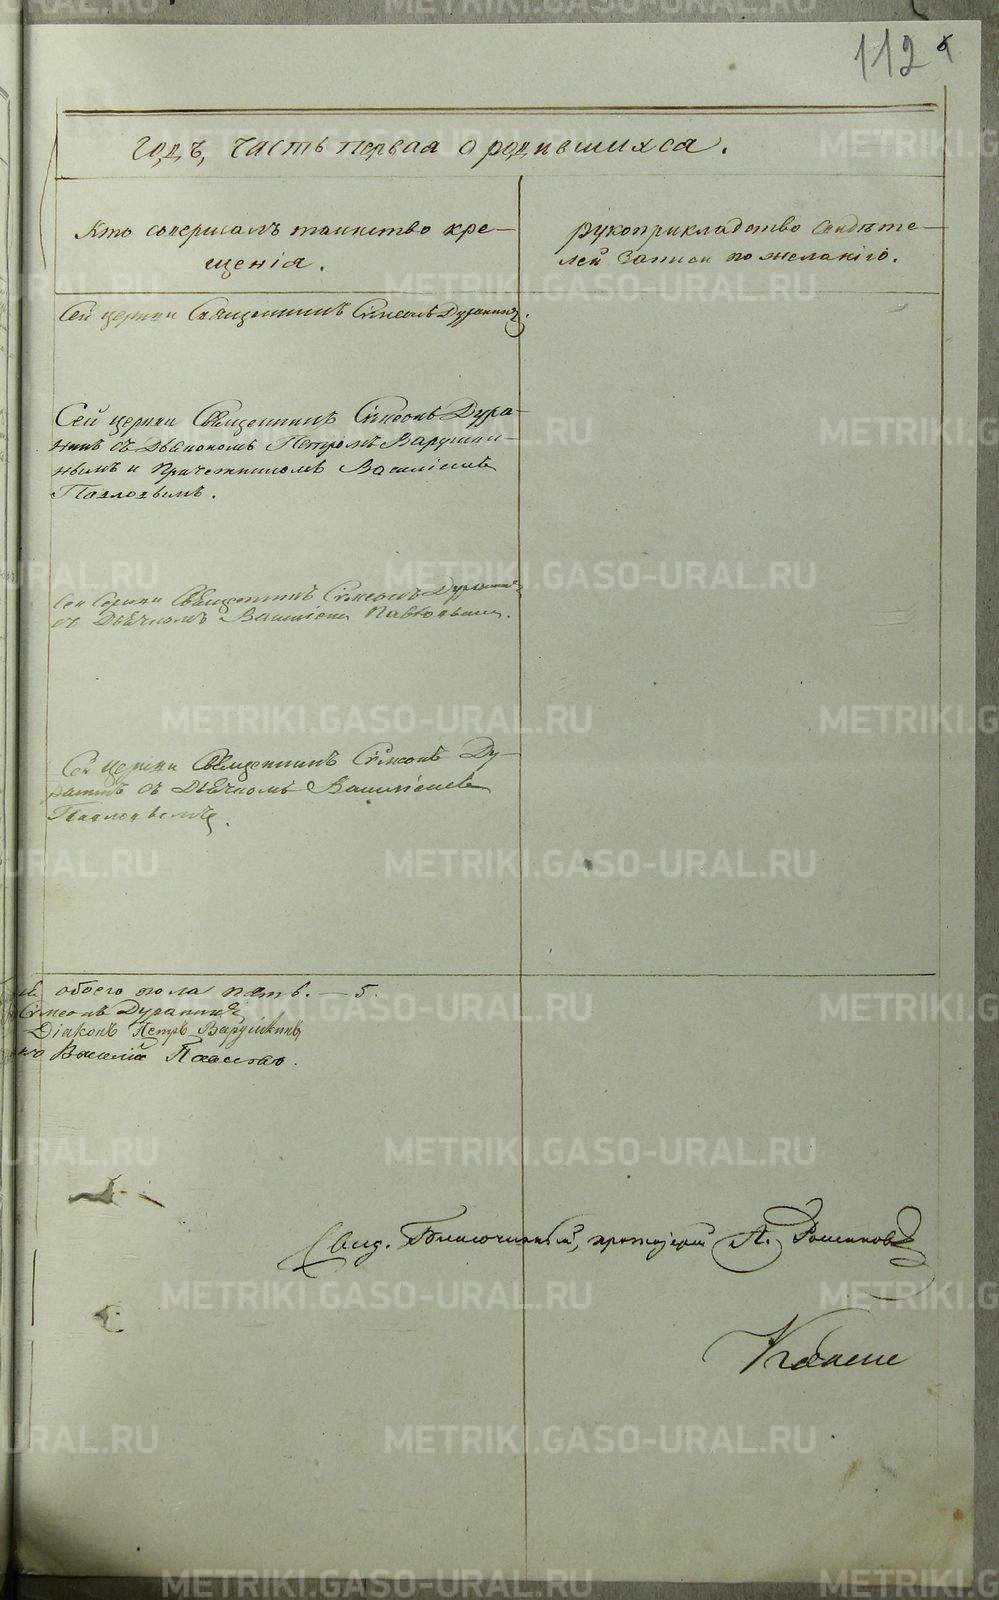 112
годъ, часть первая о родившихся.
Кто совершалъ таинство кре-
щенія.
рукоприкладство свидѣте-
лей записи по желанію.
Сей церкви Священникъ Сѵмеонъ Дуранинъ.
Сей церкви Священникъ Сѵмеонъ Дура-
нинъ съ Діакономъ Петромъ Варушки-
нымъ и Причетникомъ Василіемъ
Павловымъ.
Сей Церкви Священникъ Сѵмеонъ Дуранинъ
съ Дьячкомъ Василіемъ Павловымъ.
Сей Церкви Священникъ Сѵмеонъ Ду-
ранинъ съ Дьячкомъ Василіемъ
Павловымъ.
обоего пола пять. — 5.
Сѵмеонъ Дуранинъ
Діаконъ Петръ Варушкинъ
Василій Павловъ.
Свид. Благочинный, протоіерей А.
METRIKI.GASO-URAL.RU